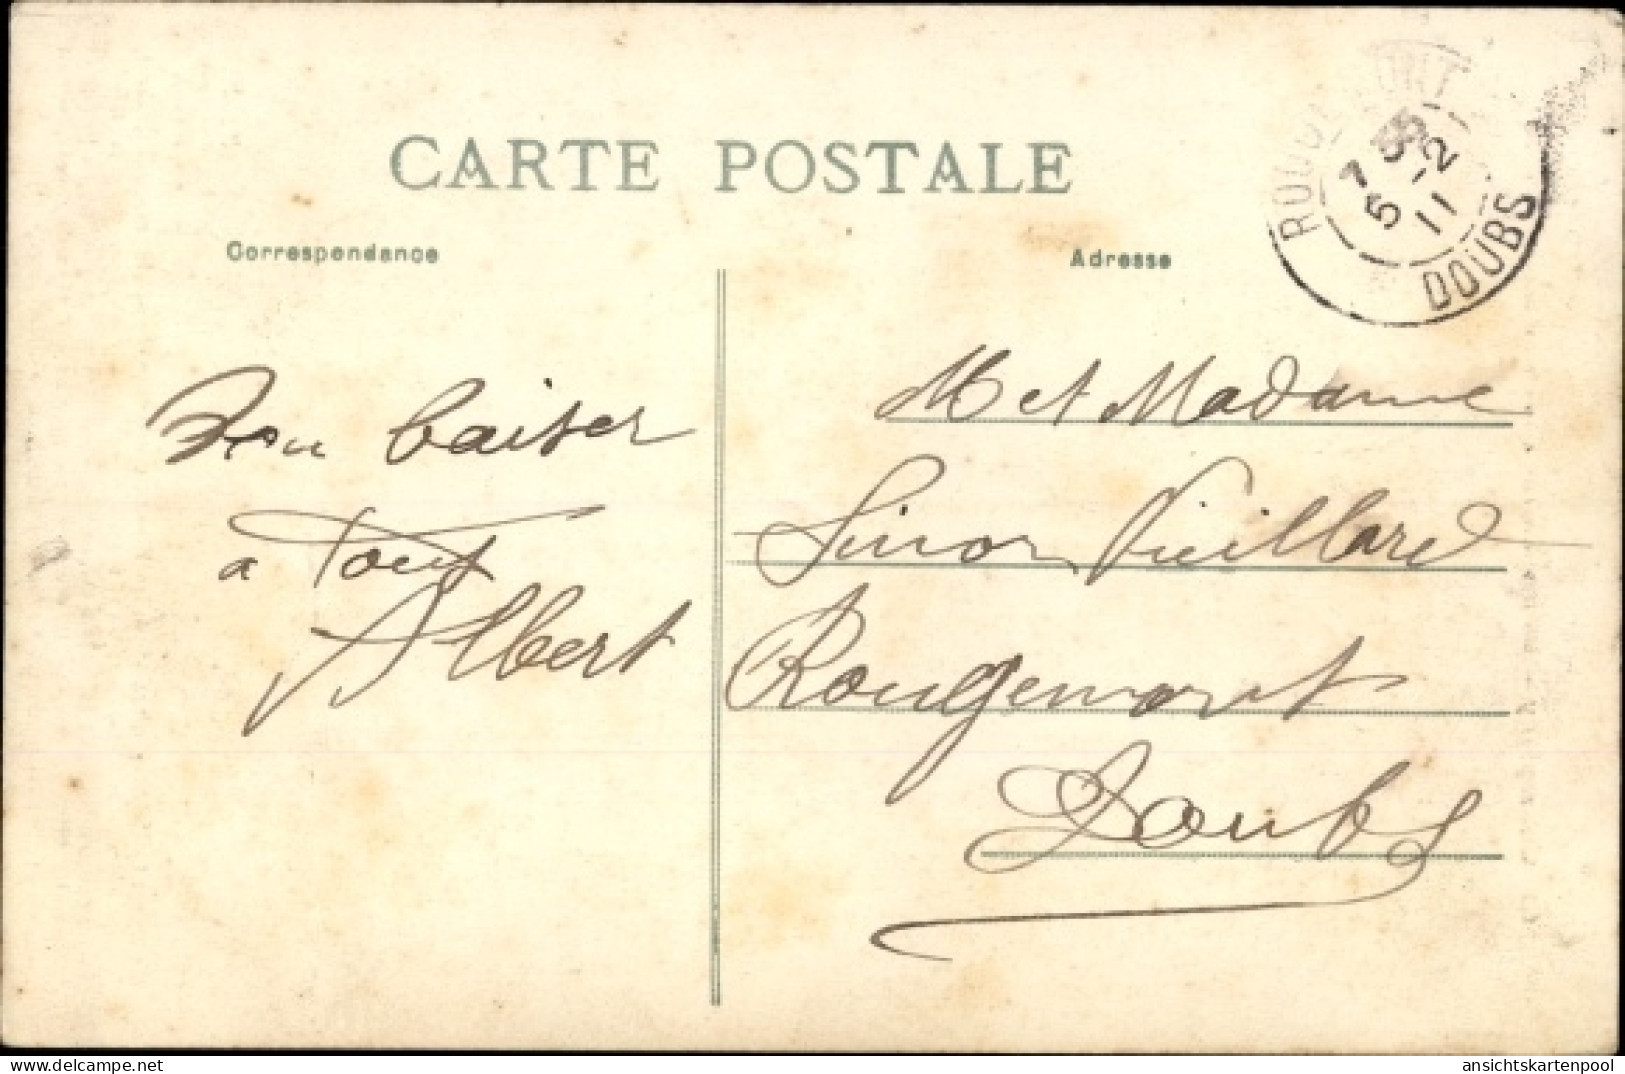 CARTE POSTALE
Correspondance
Adresse
7 55
5 -2
11
DOUBS
baiser
a Tous
Albert
M et Madame
Simon Vieillard
Rougemont
Doubs
delcampe.net
ansichtskartenpool